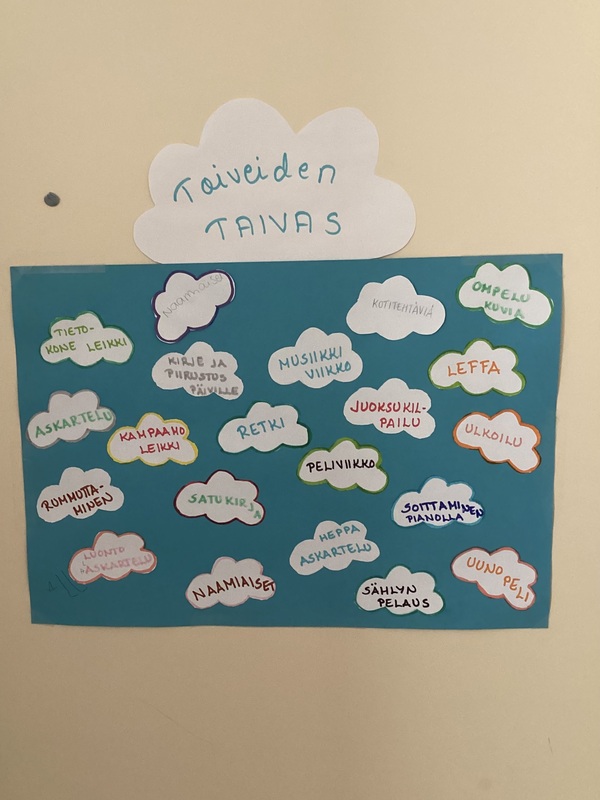 Toiveiden
TAIVAS
Naamiaiset
KOTITEHTÄVIÄ
OMPELU
KUVIA
TIETO-
KONE LEIKKI
KIRJE JA
PIIRUSTUS
PÄIVILLE
MUSIIKKI
VIIKKO
LEFFA
ASKARTELU
KAMPAAMO
LEIKKI
RETKI
JUOKSUKIL-
PAILU
ULKOILU
PELIVIIKKO
RUMMUTTA-
MINEN
SATUKIRJA
SOITTAMINEN
PIANOLLA
LUONTO
ASKARTELU
HEPPA
ASKARTELU
NAAMIAISET
SÄHLYN
PELAUS
UUNO PELI